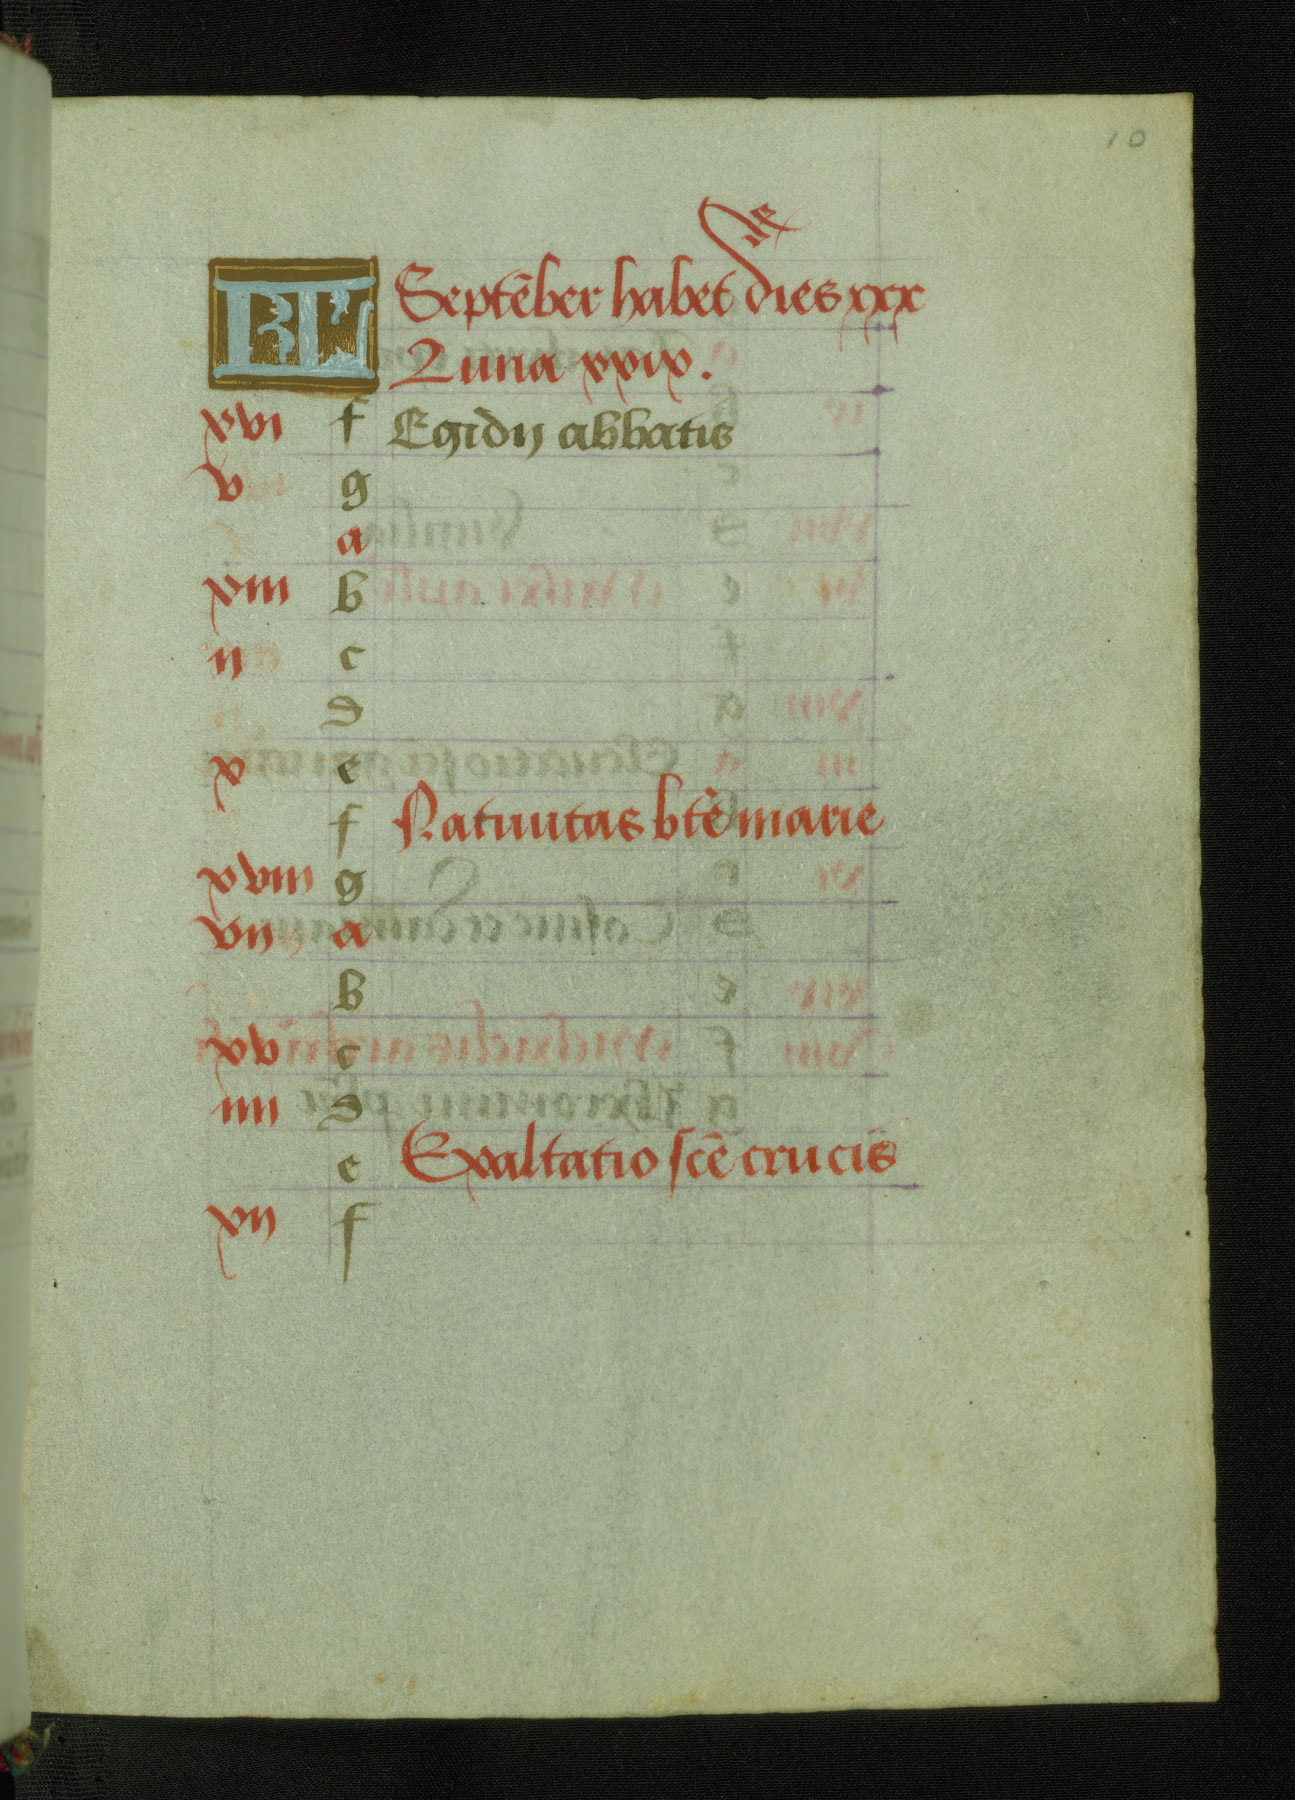 10
KL Septēber habet dies xxx
Luna xxix.
xvi f Egidij abbatis
v g
a
xiii b
ii c
d
x e
f Natiuitas btē marie
xviii g
vii a
b
xv c
iiii d
e Exaltatio scē crucis
xii f